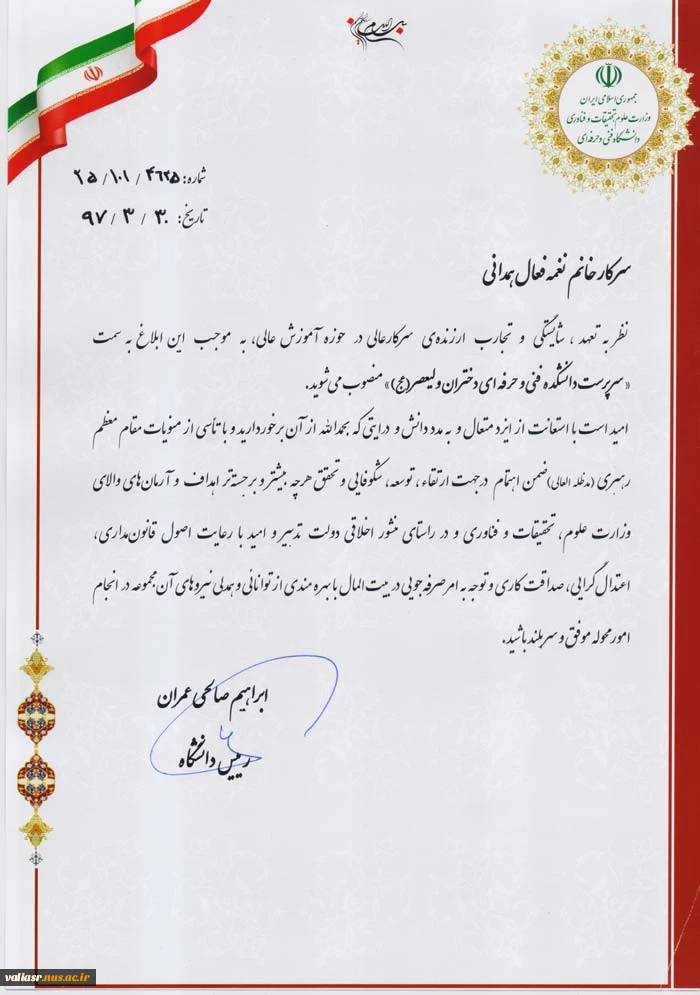 جمهوری اسلامی ایران
وزارت علوم، تحقیقات و فناوری
دانشگاه فنی و حرفه ای
شماره: ۲۵/۱۰۱/۴۶۲۵
تاریخ: ۹۷/۳/۳۰
سرکار خانم نغمه فعال همدانی
نظر به تعهد ، شایستگی و تجارب ارزنده‌ی سرکارعالی در حوزه آموزش عالی، به موجب این ابلاغ به سمت
«سرپرست دانشکده فنی و حرفه ای دختران ولیعصر(عج)» منصوب می شوید.
امید است با استعانت از ایزد متعال و به مدد دانش و درایتی که بحمدالله از آن برخوردارید و با تأسی از منویات مقام معظم
رهبری (مدظله العالی)ضمن اهتمام درجهت ارتقاء ، توسعه، شکوفایی و تحقق هرچه بیشتر و برجسته‌تر اهداف و آرمان‌های والای
وزارت علوم، تحقیقات و فناوری و در راستای منشور اخلاقی دولت تدبیر و امید با رعایت اصول قانون‌مداری،
اعتدال گرایی، صداقت کاری و توجه به امر صرفه جویی در بیت المال با بهره مندی از توانائی و همدلی نیروهای آن مجموعه در انجام
امور محوله موفق و سربلند باشید.
ابراهیم صالحی عمران
رییس دانشگاه
valiasr.nus.ac.ir